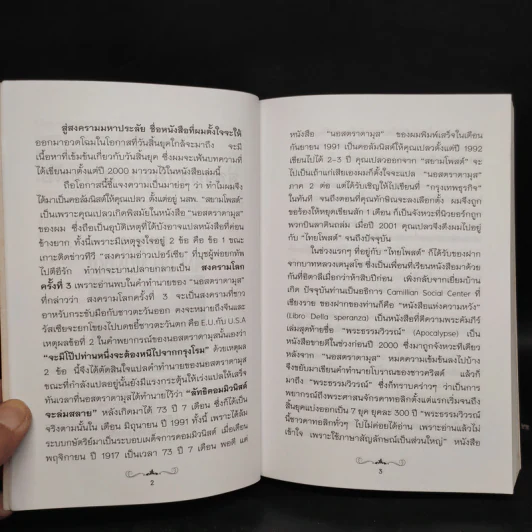 สู่สงครามมหาประลัย ชื่อหนังสือที่ผมตั้งใจจะให้
ออกมาอวดโฉมในโอกาสที่วันสิ้นยุคใกล้จะมาถึง จะมี
เนื้อหาที่เข้มข้นเกี่ยวกับวันสิ้นยุค ซึ่งผมจะเฟ้นบทความที่
ได้เขียนมาตั้งแต่ปี 2000 มารวมไว้ในหนังสือเล่มนี้
ถือโอกาสนี้ชี้แจงความเป็นมาย่อๆ ว่า ทำไมผมจึง
ได้มาเป็นคอลัมนิสต์ให้คุณเปลว ตั้งแต่อยู่ นสพ. "สยามโพสต์"
เป็นเพราะคุณเปลวเกิดพิสมัยในหนังสือ "นอสตราดามุส"
ของผม ซึ่งถือเป็นอุบัติเหตุที่ได้บังอาจแปลหนังสือที่ค่อน
ข้างยาก ทั้งนี้เพราะมีเหตุจูงใจอยู่ 2 ข้อ คือ ข้อ 1 ขณะ
เกาะติดข่าวทีวี "สงครามอ่าวเปอร์เซีย" ที่บุผู้พ่อยกทัพ
ไปตีอิรัก ทำท่าจะบานปลายกลายเป็น สงครามโลก
ครั้งที่ 3 เพราะอ่านพบในคำทำนายของ "นอสตราดามุส"
ที่กล่าวว่า สงครามโลกครั้งที่ 3 จะเป็นสงครามที่ชาว
อาหรับกระชับมิตรกับชาวตะวันออก คงจะหมายถึงจีนและ
รัสเซียจะยกโขยงไปบดขยี้ชาวตะวันตก คือ E.U.กับ U.S.A
เหตุผลข้อที่ 2 ในคำพยากรณ์ของนอสตราดามุสนั้นเอง
"จะมีโป๊ปท่านหนึ่งจะต้องหนีไปจากกรุงโรม" ด้วยเหตุผล
2 ข้อ นี้จึงได้ตัดสินใจแปลคำทำนายของนอสตราดามุส
ขณะที่กำลังแปลอยู่นั้นยังมีแรงกระตุ้นให้เร่งแปลให้เสร็จ
ทันเวลาที่นอสตราดามุสได้ทำนายไว้ว่า "ลัทธิคอมมิวนิสต์
จะล่มสลาย" หลังเกิดมาได้ 73 ปี 7 เดือน ซึ่งก็ได้เป็น
จริงตามนั้นใน เดือน มิถุนายน ปี 1991 ทั้งนี้ เพราะได้ล้ม
ระบบกษัตริย์มาเป็นระบอบเผด็จการคอมมิวนิสต์ เมื่อเดือน
พฤศจิกายน ปี 1917 เป็นเวลา 73 ปี 7 เดือน พอดี แต่
2
หนังสือ "นอสตราดามุส" ของผมพิมพ์เสร็จในเดือน
กันยายน 1991 เป็นคอลัมนิสต์ให้คุณเปลวตั้งแต่ปี 1992
เขียนไปได้ 2-3 ปี คุณเปลวออกจาก "สยามโพสต์" จะ
ไปเป็นเถ้าแก่เสียเองผมก็ตั้งใจจะแปล "นอสตราดามุส"
ภาค 2 ต่อ แต่ได้รับเชิญให้ไปเขียนที่ "กรุงเทพธุรกิจ"
ในทันที จนถึงตอนที่คุณทักษิณจะลงเลือกตั้ง ผมจึงถูก
ขอร้องให้หยุดเขียนสัก 1 เดือน ก็เป็นจังหวะที่นิวยอร์กถูก
พวกบินลาดินถล่ม เมื่อปี 2001 คุณเปลวจึงดึงผมไปอยู่
กับ "ไทยโพสต์" จนถึงปัจจุบัน
ในช่วงแรกๆ ที่อยู่กับ "ไทยโพสต์" ก็ได้รับของฝาก
จากบาทหลวงเดนุสโซ ซึ่งเป็นเพื่อนที่เรียนหนังสือมาด้วย
กันที่อิตาลีเมื่อกว่าห้าสิบปีก่อน เพิ่งกลับจากเยี่ยมบ้าน
เกิด ปัจจุบันท่านเป็นอธิการ Camillian Social Center ที่
เชียงราย ของฝากของท่านก็คือ "หนังสือแห่งความหวัง"
(Libro Della speranza) เป็นหนังสือที่ตีความพระคัมภีร์
เล่มสุดท้ายชื่อ "พระธรรมวิวรณ์" (Apocalypse) เป็น
หนังสือขายดีในช่วงก่อนปี 2000 ซึ่งมาถูกจังหวะทีเดียว
หลังจาก "นอสตราดามุส" หมดความเข้มข้นลงไปบ้าง
จึงขยับมาเขียนคำทำนายโบราณของชาวคริสต์ แล้วก็
มาถึง "พระธรรมวิวรณ์" ซึ่งก็ทราบคร่าวๆ ว่าเป็นการ
พยากรณ์ถึงพระศาสนจักรคาทอลิกตั้งแต่แรกเริ่มจนถึง
สิ้นยุคแบ่งออกเป็น 7 ยุค ยุคละ 300 ปี "พระธรรมวิวรณ์"
นี้ชาวคาทอลิกทั่วๆ ไปไม่ค่อยได้อ่าน เพราะอ่านแล้วไม่
เข้าใจ เพราะใช้ภาษาสัญลักษณ์เป็นส่วนใหญ่" หนังสือ
3